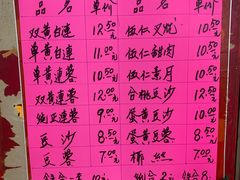 品名 单价 品名 单价
双黄白莲 12.50元 伍仁叉烧 10.50元
单黄白莲 11.00元 伍仁甜肉 10.50元
单黄莲蓉 10.50元 伍仁素月 10.50元
双黄莲蓉 12.00元 合桃豆沙 10.50元
纯正莲蓉 9.00元 蛋黄豆沙 10.00元
豆沙 8.50元 蛋黄豆蓉 10.00元
豆蓉 7.00元 椰丝 7.00元